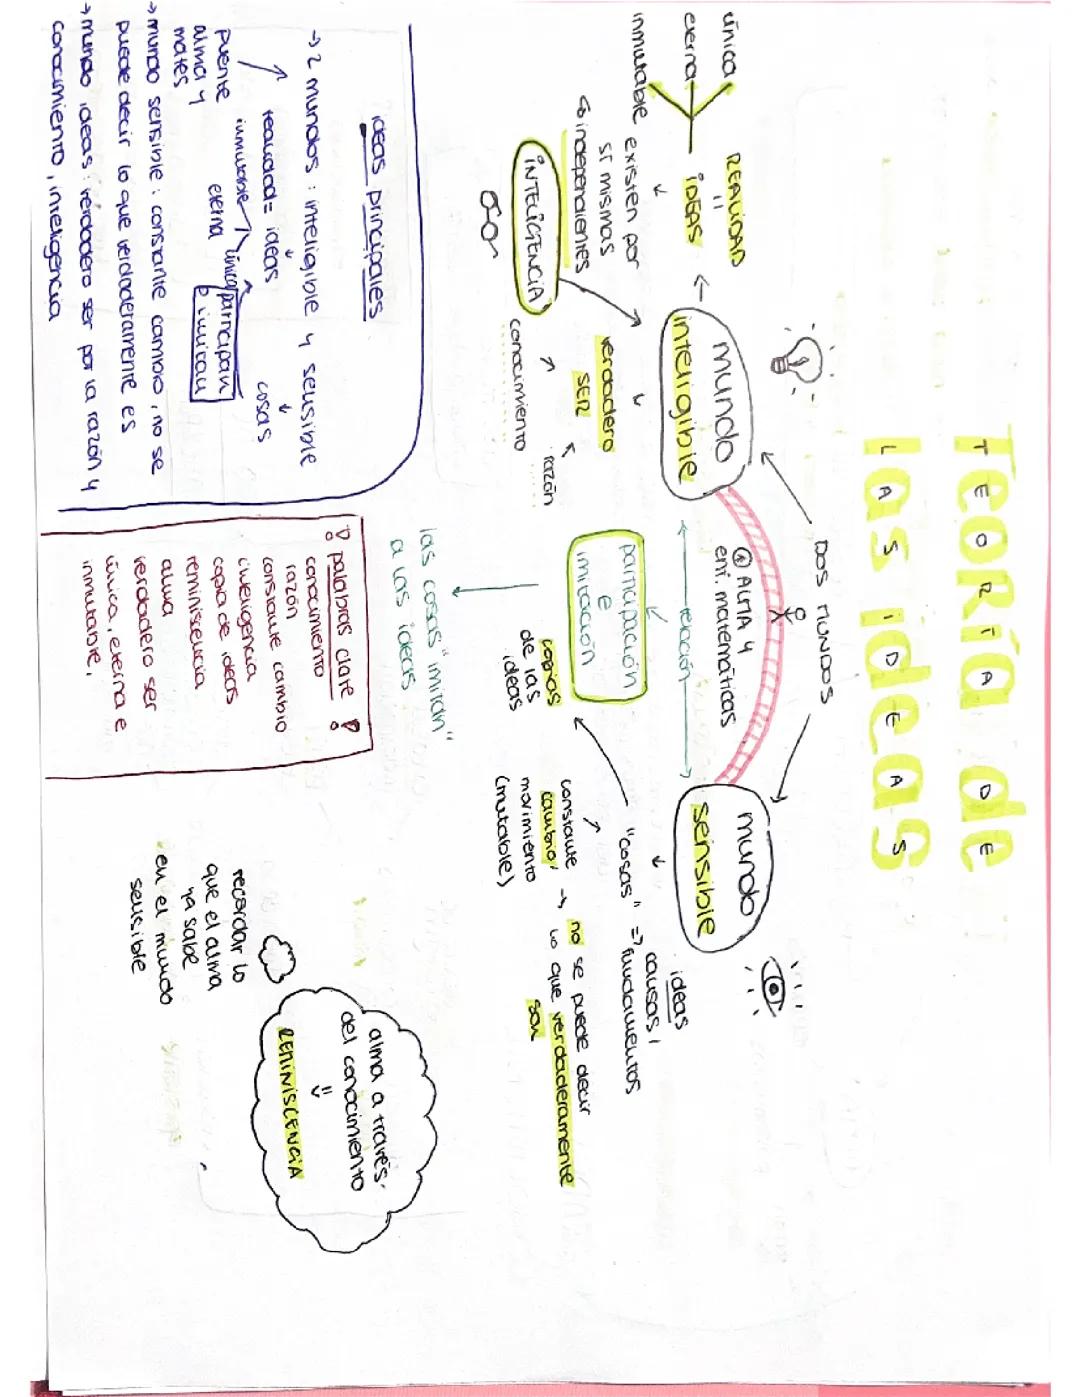 Teoría de
TEORIA DE
las ideas
LAS IDEAS
DOS MUNDOS
mundo
inteligible
mundo
sensible
única
eterna
inmutable
REALIDAD
=
iDEAS
existen por
sí mismas
↳ independientes
iNTELiGENCiA
verdadero
SER
conocimiento
razón
ALMA y
ent. matemáticas
relación
participación
e
imitación
copias
de las
ideas
las cosas "imitan"
a las ideas
"cosas" => fundamentos
causas,
ideas
constante
cambio,
movimiento
(mutable)
→ no se puede decir
lo que verdaderamente
son
alma a través
del conocimiento
=
REMINISCENCiA
recordar lo
que el alma
ya sabe
en el mundo
sensible
ideas principales
→ 2 mundos : inteligible y sensible
realidad = ideas
cosas
puente
alma y
mates
inmutable
eterna
única
participan
o imitan
→ mundo sensible : constante cambio, no se
puede decir lo que verdaderamente es
→ mundo ideas : verdadero ser por la razón y
conocimiento, inteligencia
! palabras clave !
conocimiento
razón
constante cambio
inteligencia
copia de ideas
reminiscencia
alma
verdadero ser
única, eterna e
inmutable,